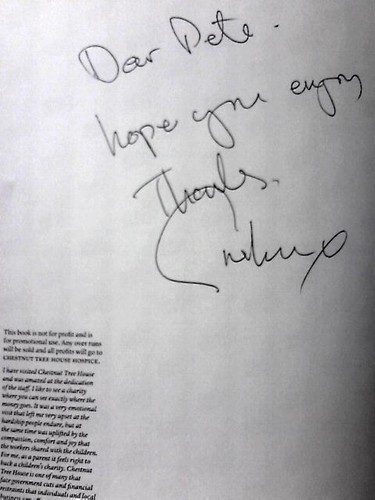 Dear Pete.
hope you enjoy
Thanks.
This book is not for profit and is
for promotional use. Any over runs
will be sold and all profits will go to
CHESTNUT TREE HOUSE HOSPICE.
I have visited Chestnut Tree House
and was amazed at the dedication
of the staff. I like to see a charity
where you can see exactly where the
money goes. It was a very emotional
visit that left me very upset at the
hardship people endure, but at
the same time was uplifted by the
compassion, comfort and joy that
the workers shared with the children.
For me, as a parent it feels right to
back a children's charity. Chestnut
Tree House is one of many that
face government cuts and financial
restraints that individuals and local